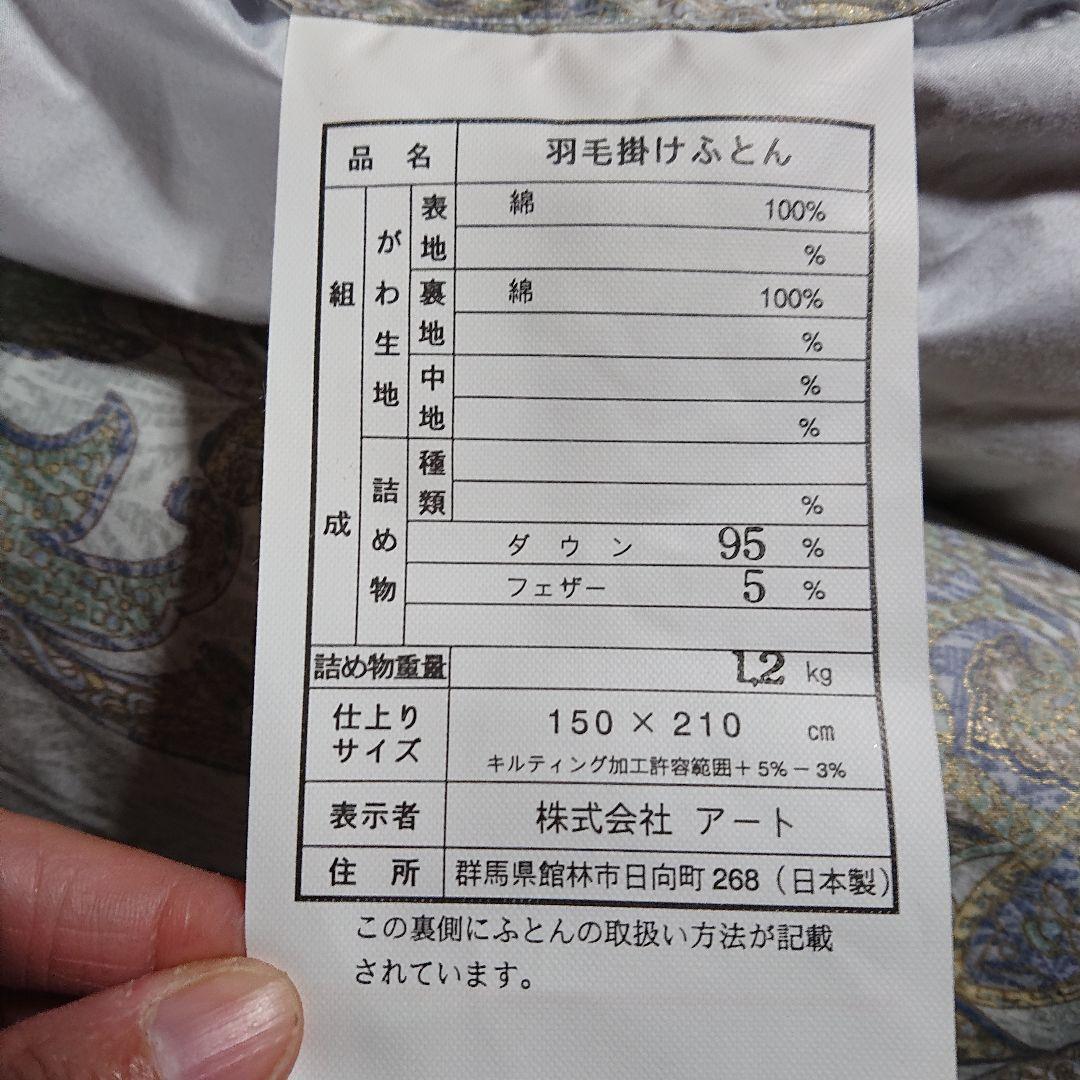 品名 羽毛掛けふとん
組成 がわ生地 表地 綿 100%
%
裏地 綿 100%
%
中地 %
%
詰め物 種類
%
ダウン 95 %
フェザー 5 %
詰め物重量 1.2 kg
仕上りサイズ 150 × 210 cm
キルティング加工許容範囲+5%-3%
表示者 株式会社 アート
住所 群馬県館林市日向町268(日本製)
この裏側にふとんの取扱い方法が記載
されています。